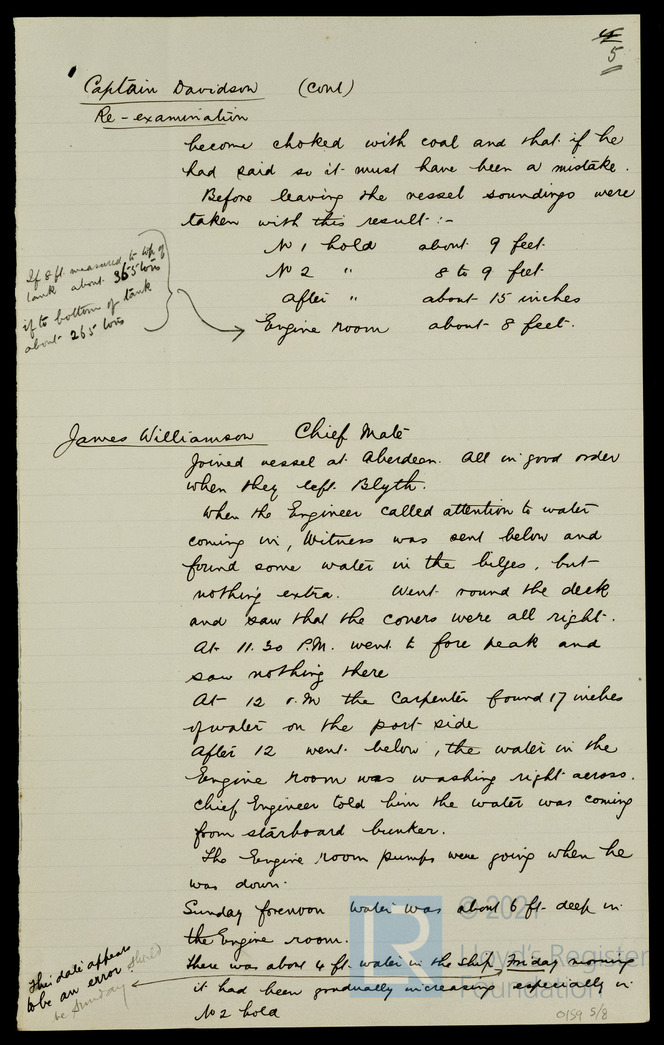 5
Captain Davidson (Cont)
Re-examination
become choked with coal and that if he
had said so it must have been a mistake.
Before leaving the vessel soundings were
taken with this result :-
No 1 hold about 9 feet.
No 2 " 8 to 9 feet
After " about 15 inches
Engine room about 8 feet.
If 8 ft. measured to top of
tank about 365 tons
if to bottom of tank
about 265 tons
James Williamson Chief Mate
Joined vessel at Aberdeen. All in good order
when they left Blyth.
When the Engineer called attention to water
coming in, Witness was sent below and
found some water in the bilges, but
nothing extra. Went round the deck
and saw that the covers were all right.
At 11.30 P.M. went to fore peak and
saw nothing there
At 12 P.M the Carpenter found 17 inches
of water on the port side
After 12 went below, the water in the
Engine room was washing right across.
Chief Engineer told him the water was coming
from starboard bunker.
The Engine room pumps were going when he
was down.
Sunday forenoon water was about 6 ft. deep in
the Engine room.
There was about 4 ft. water in the ship Friday morning
it had been gradually increasing especially in
No 2 hold
This date appears
to be an error should
be Sunday
© 2021
Lloyd's Register
Foundation
0159 5/8